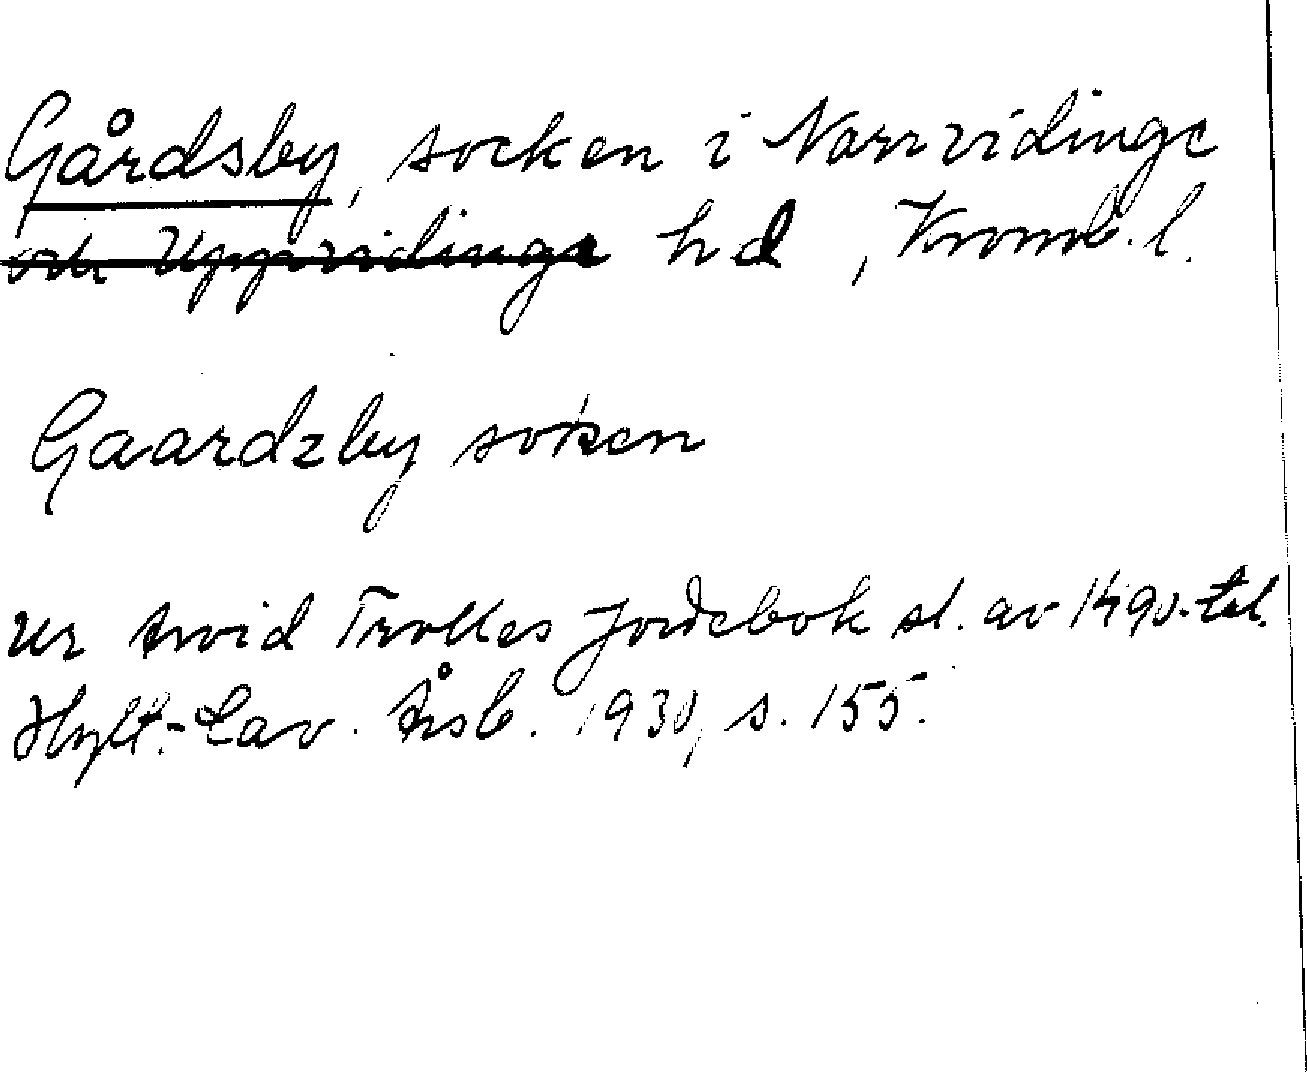 Gårdsby, socken i Norrvidinge
och Uppvidinge hd, Kronob. l.
Gaardzby soken
Ur Arvid Trolles Jordebok sl. av 1490-tal.
Hylt.-Cav. Årsb. 1930, s. 155.